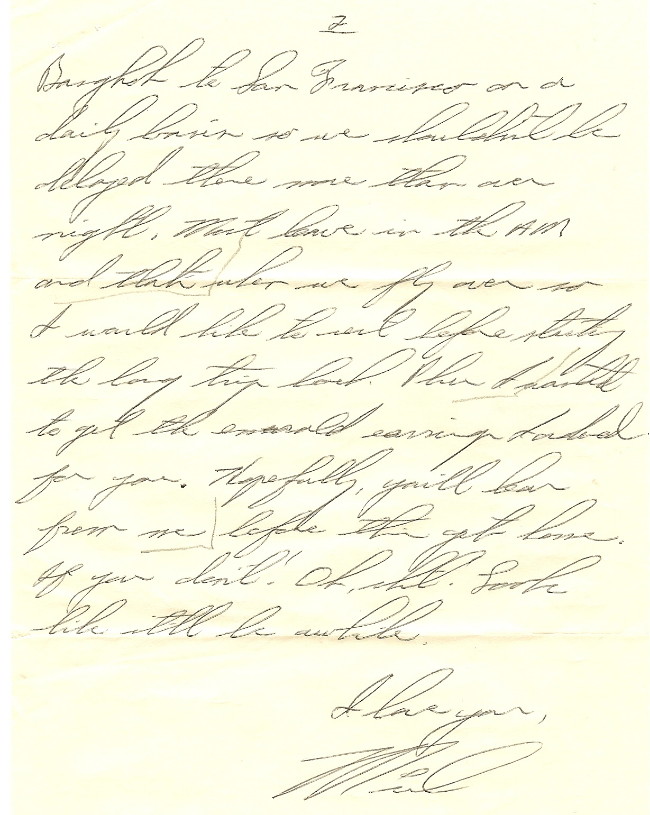 2
Bangkok to San Francisco on a
daily basis so we shouldn't be
delayed there more than over
night. Most leave in the AM
and that's when we fly over so
I would like to rest before starting
the long trip back. Plus I wanted
to get the emerald earrings I ordered
for you. Hopefully, you'll hear
from me before this gets home.
If you don't! Oh, sht! Looks
like it'll be awhile.
I love you,